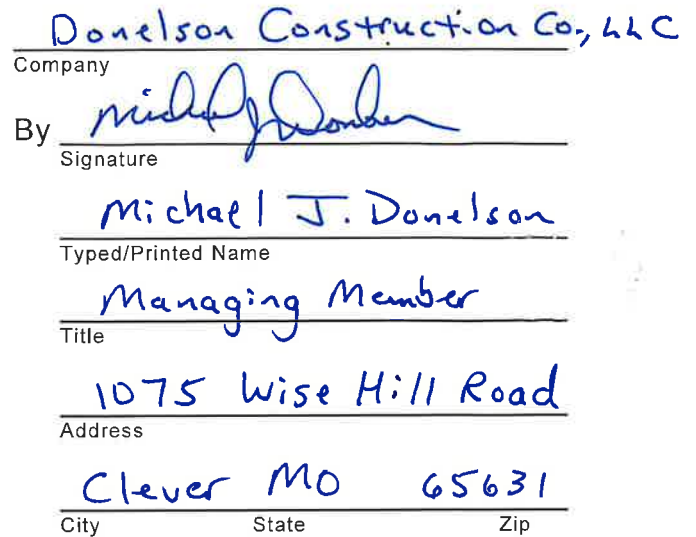 Donelson Construction Co., LLC
Company
By Michael J. Donelson
Signature
Michael J. Donelson
Typed/Printed Name
Managing Member
Title
1075 Wise Hill Road
Address
Clever MO 65631
City State Zip